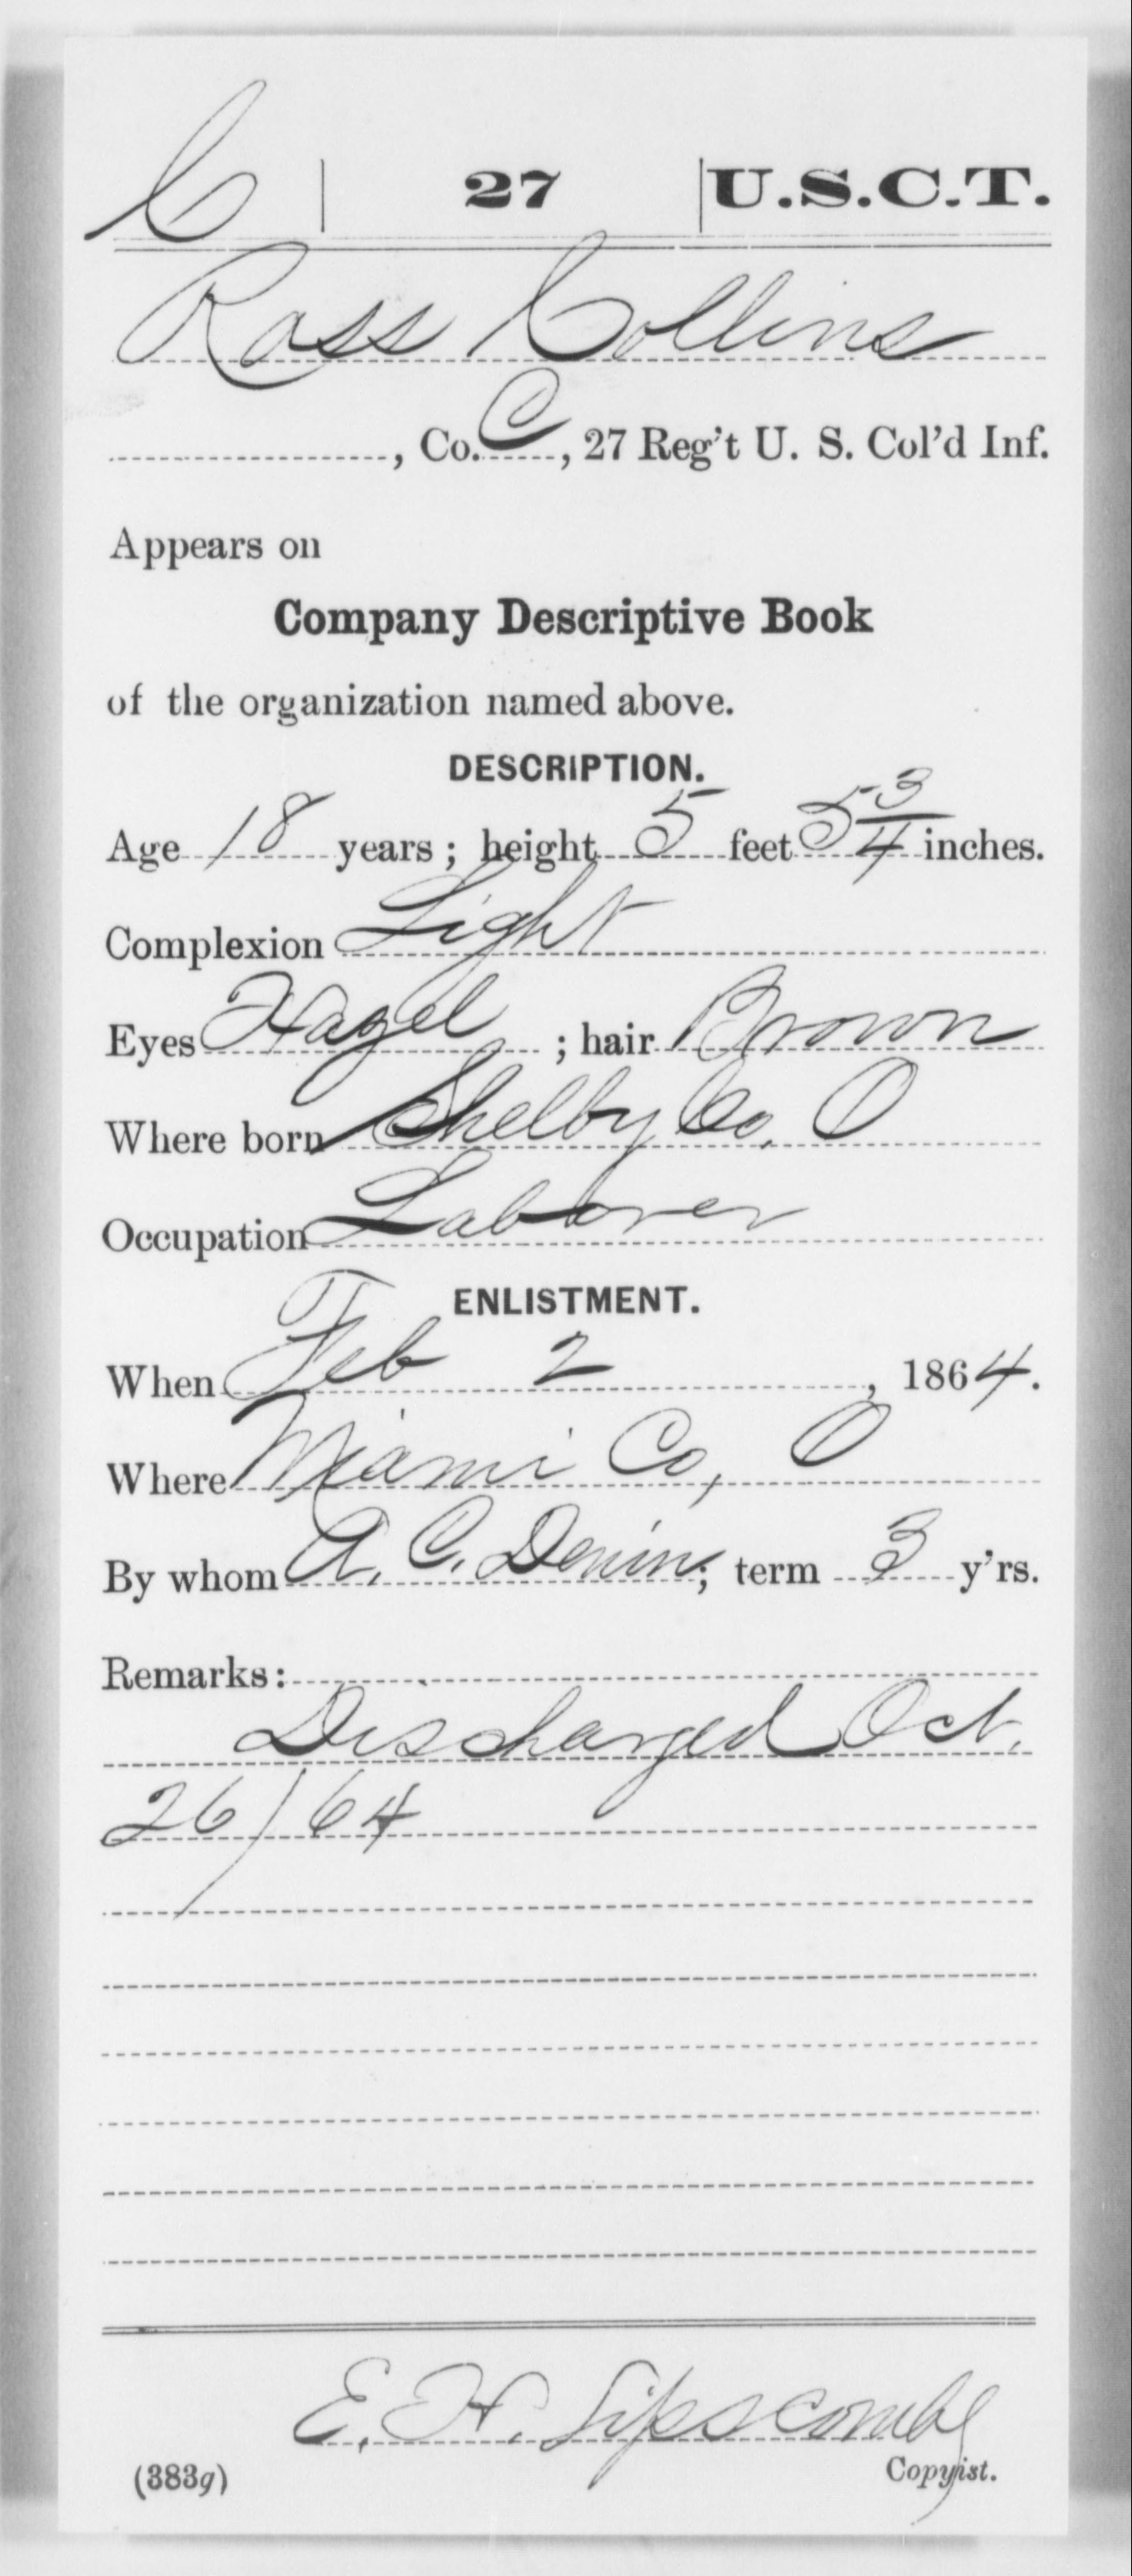 C | 27 | U.S.C.T.
Ross Collins
, Co. C, 27 Reg't U. S. Col'd Inf.
Appears on
Company Descriptive Book
of the organization named above.
DESCRIPTION.
Age 18 years; height 5 feet 5 3/4 inches.
Complexion Light
Eyes Hazel; hair Brown
Where born Shelby Co. O
Occupation Laborer
ENLISTMENT.
When Feb 2, 1864.
Where Miami Co, O
By whom A. C. Denin; term 3 y'rs.
Remarks:
Discharged Oct.
26/64
E. H. Lipscomb
(383g) Copyist.